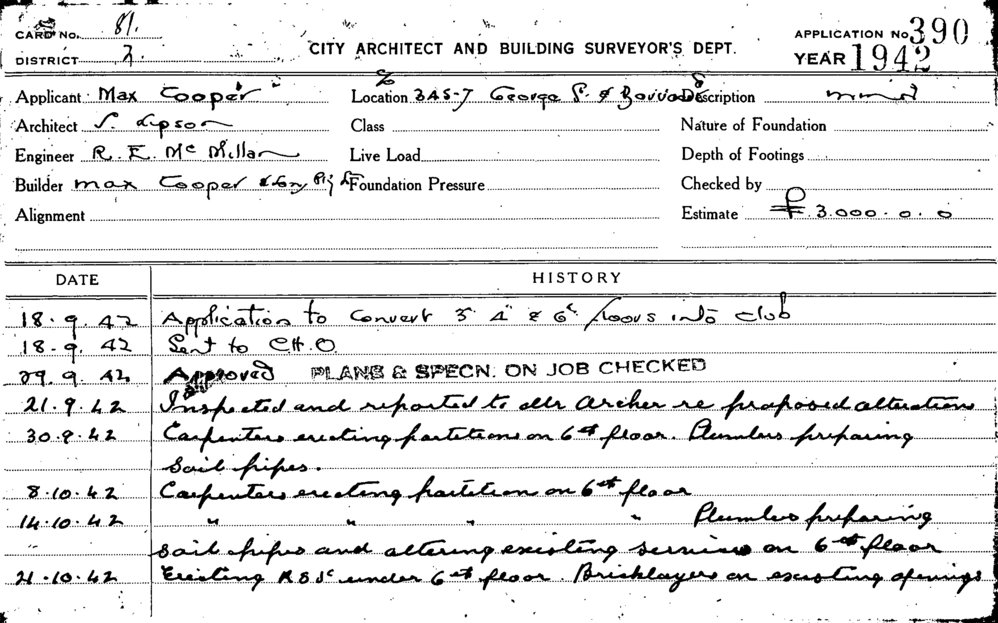 CARD No. 81.
DISTRICT 2.
CITY ARCHITECT AND BUILDING SURVEYOR'S DEPT.
APPLICATION No 390
YEAR 1942
Applicant Max Cooper Location 345-7 George St. & Description
Architect S. Lipson Class Nature of Foundation
Engineer R. E. McMillan Live Load Depth of Footings
Builder Max Cooper & Foundation Pressure Checked by
Alignment Estimate £3.000.0.0
DATE HISTORY
18.9.42 Application to convert 3 4 & 6 floors into club
18.9.42 Sent to C.H.O.
29.9.42 Approved PLANS & SPECN. ON JOB CHECKED
21.9.42 Inspected and reported to Mr Archer re proposed alterations
30.9.42 Carpenters erecting partitions on 6th floor. Plumbers preparing
soil pipes.
8.10.42 Carpenters erecting partition on 6th floor
14.10.42 " " " " Plumbers preparing
soil pipes and altering existing services on 6th floor
21.10.42 Erecting RSJs under 6th floor. Bricklayers on existing openings